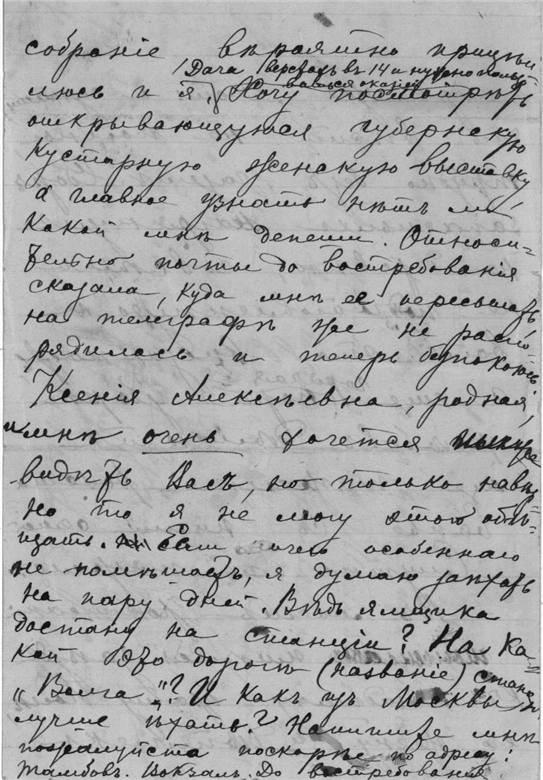 собранiе вѣроятно прицѣп
/Дача верстахъ въ 14 и нужно пользо
ваться оказiей/
люсь и я. Хочу посмотрѣть
открывающуюся губернскую
Кустарную женскую выставку
а главное узнать нѣтъ ли
какой мнѣ депеши. Относи=
тельно почты до востребованiя
сказала, куда мнѣ ее пересылать
на телеграфѣ же не распо
рядилась и теперь безпокоюсь
Ксенiя Алексѣевна, родная,
и мнѣ очень хочется
видѣть Васъ, но только навѣр
но то я не могу этого обѣ=
щать. Если ничего особеннаго
не помѣшаетъ, я думаю заѣхать
на пару дней. Вѣдь ямщика
достану на станцiи? На ка=
кой это дорогѣ (названiе) станцiя
„Волга„? И какъ изъ Москвы
лучше ѣхать? Напишите мнѣ
пожалуйста поскорѣе по адресу:
Тамбовъ. Вокзалъ. До востребованiя